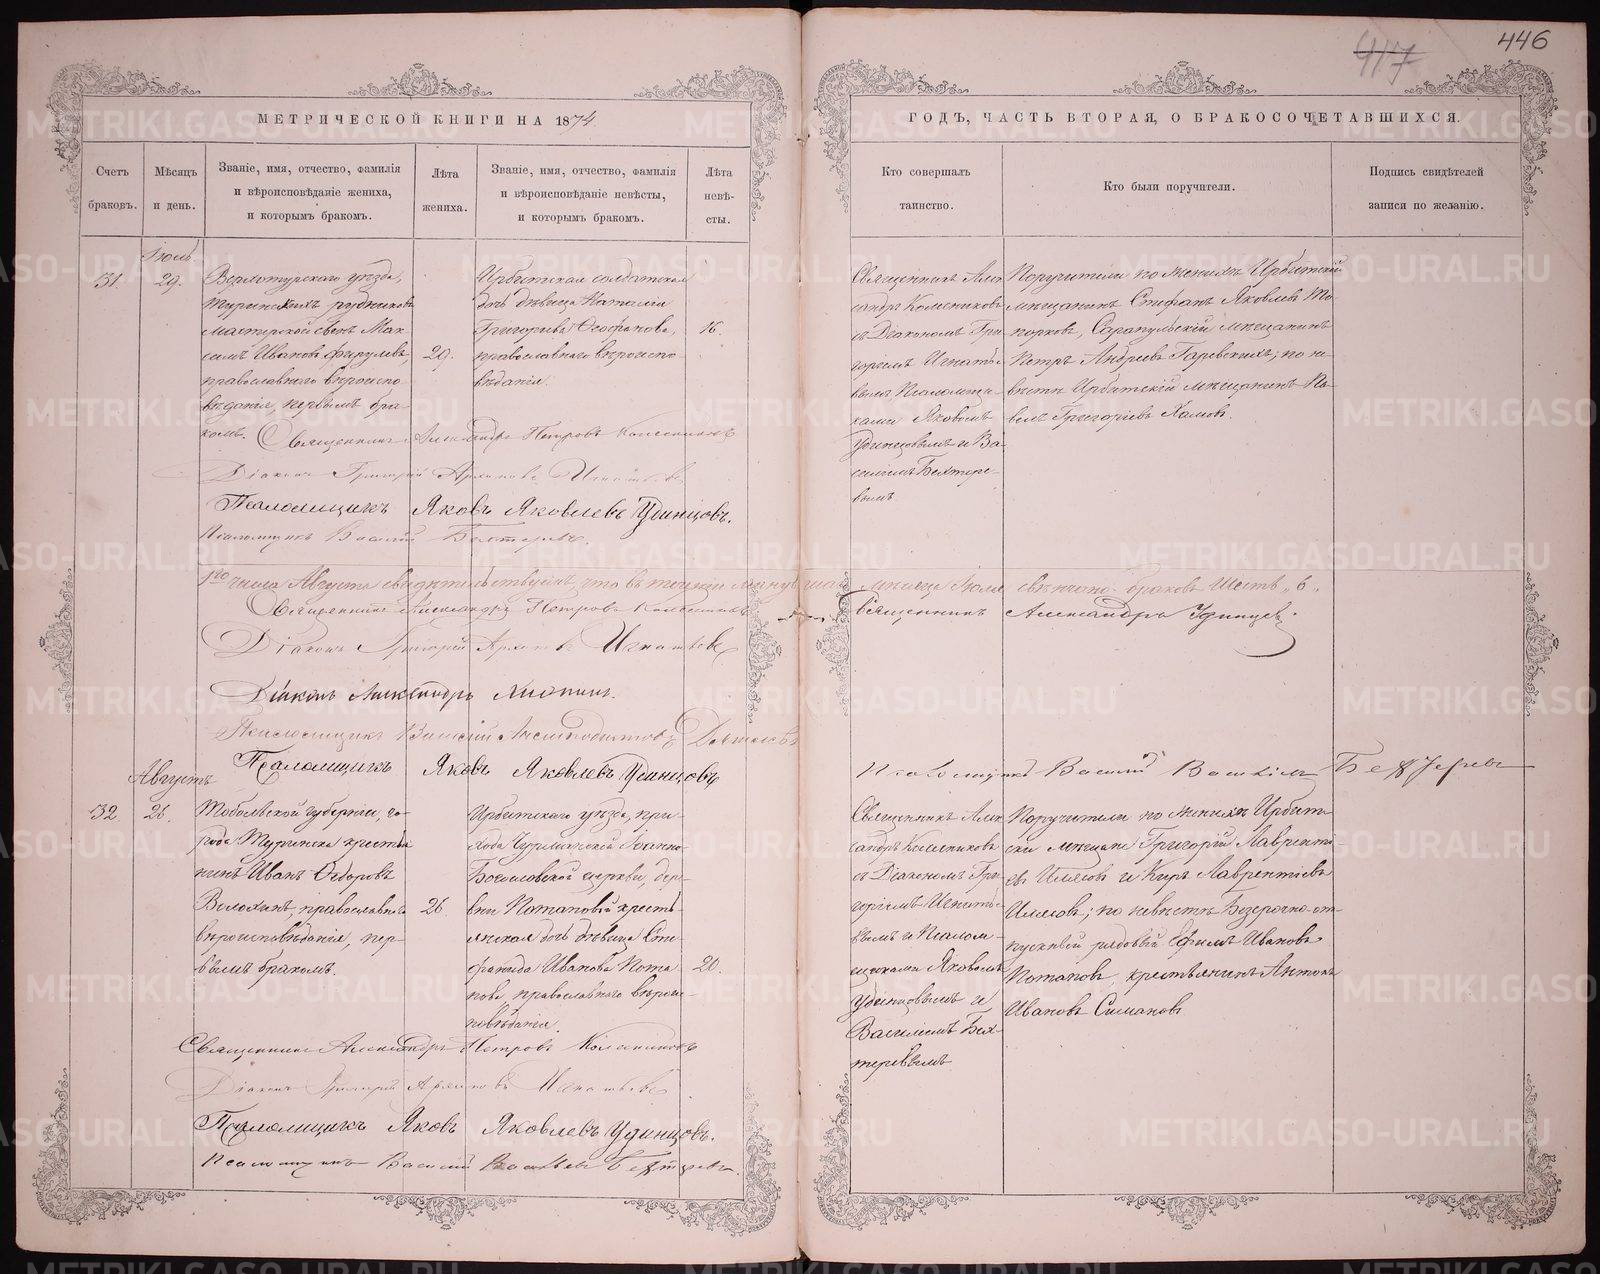 417
446
МЕТРИЧЕСКОЙ КНИГИ НА 1874
ГОДЪ, ЧАСТЬ ВТОРАЯ, О БРАКОСОЧЕТАВШИХСЯ.
Счетъ
браковъ.
Мѣсяцъ
и день.
Званіе, имя, отчество, фамилія
и вѣроисповѣданіе жениха,
и которымъ бракомъ.
Лѣта
жениха.
Званіе, имя, отчество, фамилія
и вѣроисповѣданіе невѣсты,
и которымъ бракомъ.
Лѣта
невѣ-
сты.
Кто совершалъ
таинство.
Кто были поручители.
Подпись свидѣтелей
записи по желанію.
31.
Июль
29.
Верхотурскаго уѣзда,
Туринскихъ рудниковъ
мастерской сынъ Мак-
симъ Ивановъ
православнаго вѣроиспо-
вѣданія, первымъ бра-
комъ.
29.
Ирбитская солдатская
дочь дѣвица Наталия
Григорьева Ѳеофанова,
православнаго вѣроиспо-
вѣданія.
16.
Священникъ Алек-
сандръ Колесниковъ
съ Діакономъ Гри-
горіемъ Игнатье-
вымъ Псаломщи-
ками Яковомъ
Удинцовымъ и Ва-
силіемъ Бехтере-
вымъ
Поручители по женихѣ Ирбитскій
мѣщанинъ Стефанъ Яковлевъ То-
порковъ, Сарапульскій мѣщанинъ
Петръ Андреевъ Гаревскихъ; по не-
вѣстѣ Ирбитскій мѣщанинъ Па-
велъ Григорьевъ Хамовъ.
Священникъ Александръ Петровъ Колесниковъ
Діаконъ Григорій Архиповъ Игнатьевъ
Псаломщикъ Яковъ Яковлевъ Удинцовъ.
Псаломщикъ Василій Бехтеревъ.
1го числа Августа свидѣтельствуемъ, что въ теченіи минувшаго мѣсяца Іюля свѣнчано браковъ Шесть „6„
Священникъ Александръ Петровъ Колесниковъ
Священникъ Александръ Удинцев
Діаконъ Григорій Архиповъ Игнатьевъ
Діаконъ Александръ
Псаломщикъ Василій
Псаломщикъ Яковъ Яковлевъ Удинцовъ
Псаломщикъ Василій Васильевъ Бехтеревъ
32.
Августъ
26.
Тобольской губерніи, го-
рода Туринска кресть-
нинъ Иванъ Ѳедоровъ
Волохинъ, православнаго
вѣроисповѣданія, пер-
вымъ бракомъ.
26.
Ирбитскаго уѣзда, при-
хода Чурманской Іоанно-
Богословской церкви, дер-
вни Потаповой кресть-
янская дочь дѣвица Сте-
фанида Иванова Пота-
пова, православнаго вѣроис-
повѣданія.
20.
Священникъ Алек-
сандръ Колесниковъ
съ Діакономъ Гри-
горіемъ Игнатье-
вымъ и Псалом-
щиками Яковомъ
Удинцовымъ и
Василіемъ Бех-
теревымъ
Поручители по женихѣ Ирбит-
ски мѣщане Григорій Лавренті-
евъ и Киръ Лаврентіевъ
по невѣстѣ Безсрочно-от-
пускный рядовый Ефимъ Ивановъ
Потаповъ, крестьянинъ Антонъ
Ивановъ Симановъ
Священникъ Александръ Петровъ Колесниковъ
Діаконъ Григорій Архиповъ Игнатьевъ
Псаломщикъ Яковъ Яковлевъ Удинцовъ.
Псаломщикъ Василій Васильевъ Бехтеревъ.
METRIKI.GASO-URAL.RU